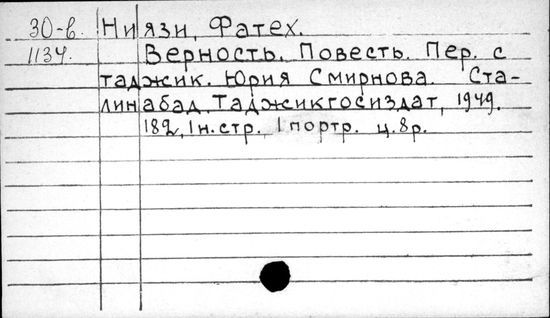 30-в. Ниязи, Фатех.
1134. Верность. Повесть. Пер. с
таджик. Юрия Смирнова. Ста-
линабад, Таджикгосиздат, 1949.
182, 1 н. стр. 1 портр. ц. 8 р.